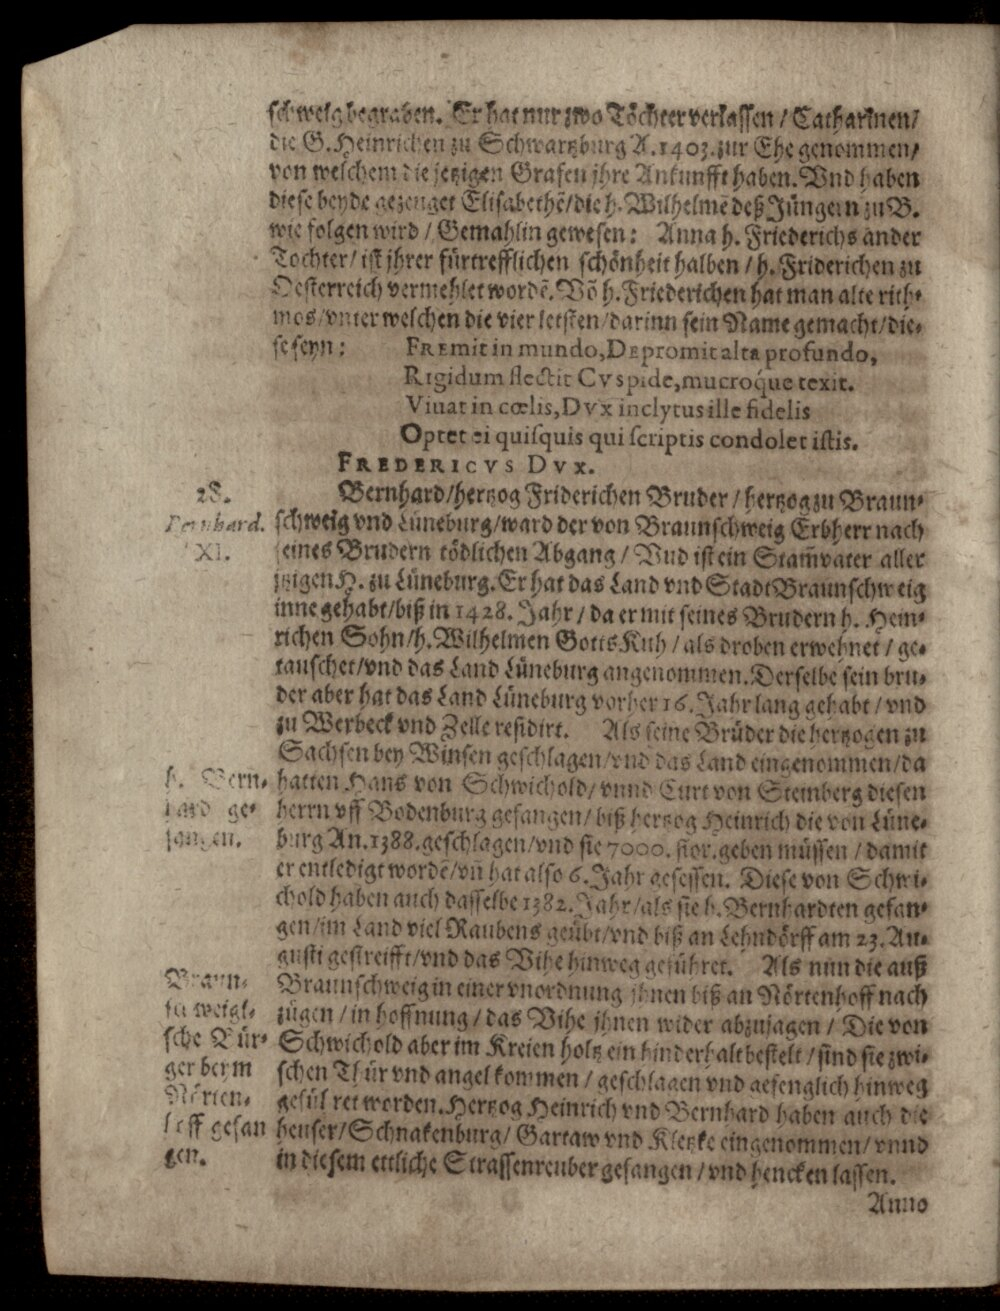 schweig begraben. Er hat nur zwo Töchter verlassen / Catharinen/
die G. Heinrichen zu Schwartzburg A. 1403. zur Ehe genommen/
von welchem die jetzigen Grafen jhre Ankunfft haben. Vnd haben
diese beyde gezeuget Elisabethē/die h. Wilhelmē deß Jüngern zu B.
wie folgen wird / Gemahlin gewesen: Anna h. Friederichs ander
Tochter/ ist jhrer fürtrefflichen schönheit halben / h. Friderichen zu
Oesterreich vermehlet wordē. Vō h. Friederichen hat man alte rith-
mos/vnter welchen die vier letsten/darinn sein Name gemacht/die-
se seyn:
FREmit in mundo, DEpromit alta profundo,
RIgidum flectit CVspide, mucroq́ue texit.
Viuat in cœlis, DVx inclytus ille fidelis
Optet ei quisquis qui scriptis condolet istis.
FREDERICVS DVX.
28.
Bernhard.
XI.
Bernhard/hertzog Friderichen Bruder / hertzog zu Braun-
schweig vnd Lüneburg/ward der von Braunschweig Erbherr nach
seines Brudern tödlichen Abgang / Vnd ist ein Stam̄vater aller
jtzigen H. zu Lüneburg. Er hat das Land vnd Stadt Braunschweig
inne gehabt/biß in 1428. Jahr / da er mit seines Brudern h. Hein-
richen Sohn/h. Wilhelmen Gotts Kuh / als droben erwehnet / ge-
tauschet/vnd das Land Lüneburg angenommen. Derselbe sein bru-
der aber hat das Land Lüneburg vorher 16. Jahr lang gehabt / vnd
zu Werbeck vnd Zelle residirt. Als seine Brüder die hertzogen zu
Sachsen bey Winsen geschlagen/vnd das Land eingenommen/da
h. Bern-
hard ge-
fangen.
hatten Hans von Schwichold/ vnnd Curt von Steinberg diesen
herrn vff Bodenburg gefangen/ biß hertzog Heinrich die von Lüne-
burg An. 1388. geschlagen/vnd sie 7000. flor. geben müssen / damit
er entledigt wordē/vn̄ hat also 6. Jahr gesessen. Diese von Schwi-
chold haben auch dasselbe 1382. Jahr/als sie h. Bernhardten gefan-
gen/im Land viel Raubens geübt/vnd biß an Lehndörff am 23. Au-
gusti gestreifft/vnd das Vihe hinweg geführet. Als nun die auß
Braun-
schweigi-
sche Bür-
ger beym
Nörten-
hoff gefan
gen.
Braunschweig in einer vnordnung jhnen biß an Nörtenhoff nach
zügen / in hoffnung / das Vihe jhnen wider abzujagen / Die von
Schwichold aber im Kreien holtz ein hinderhalt bestelt / sind sie zwi-
schen Thür vnd angel kommen / geschlagen vnd gefenglich hinweg
gefüh ret worden. Hertzog Heinrich vnd Bernhard haben auch die
heuser/Schnakenburg/ Gartaw vnd Kletzke eingenommen/ vnnd
in diesem ettliche Strassenreuber gefangen / vnd hencken lassen.
Anno